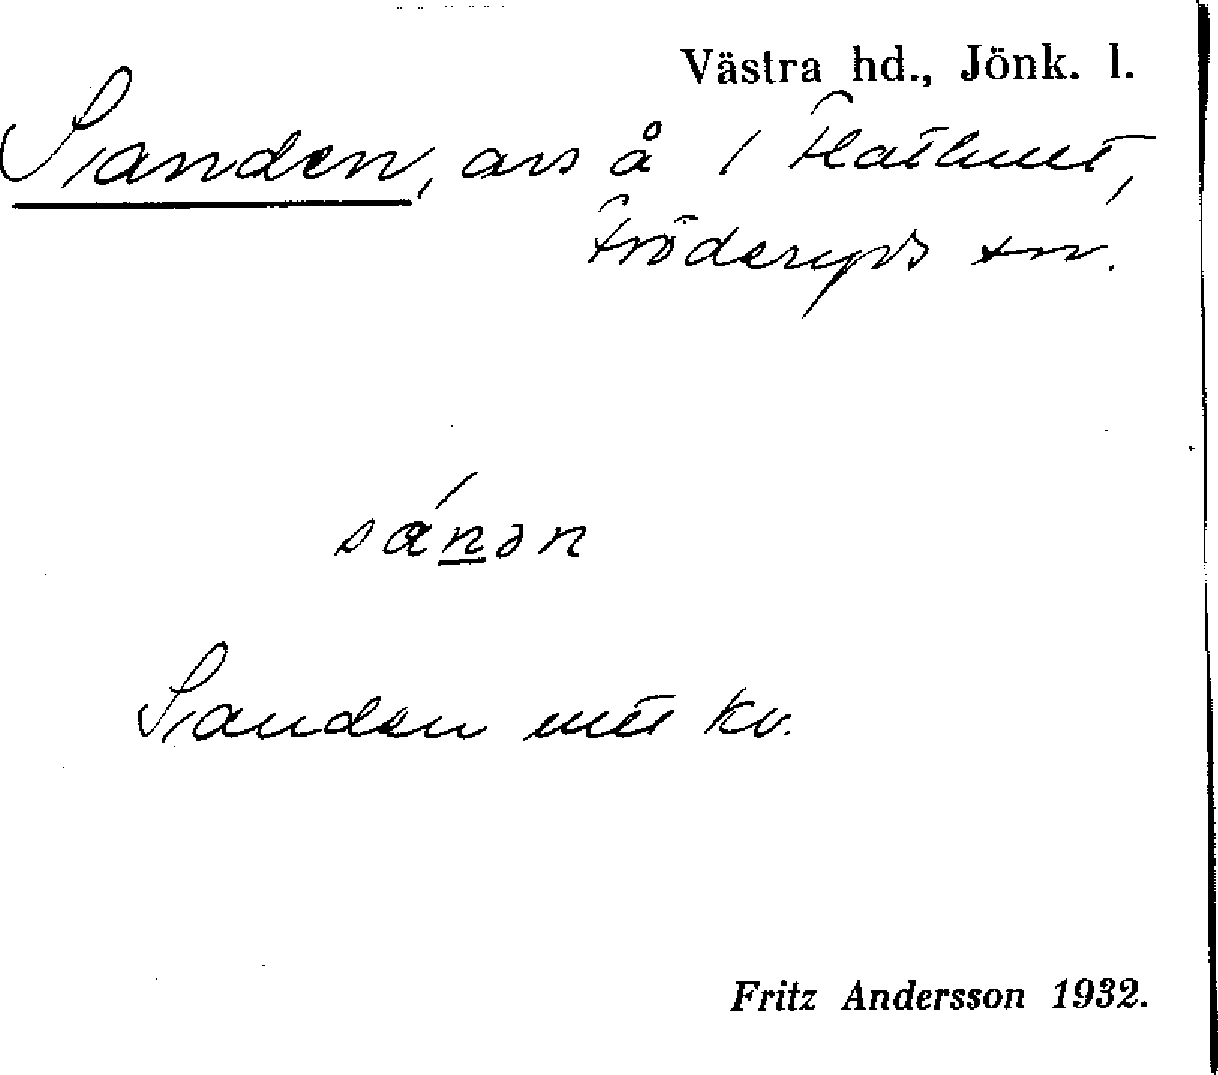 Västra hd., Jönk. l.
Sanden, avs å / Flathult,
Fröderyds sn.
sánən
Sanden utt kv.
Fritz Andersson 1932.